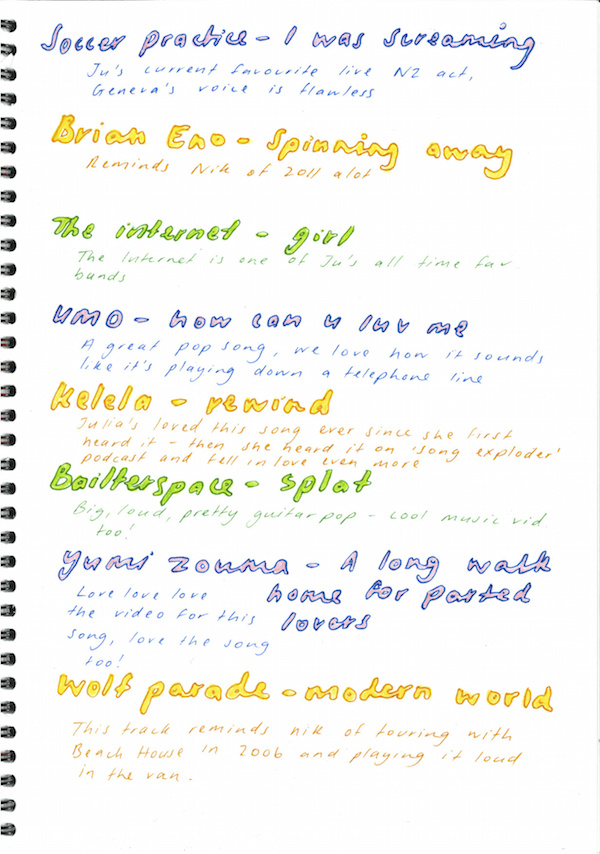 Soccer practice - I was screaming
Ju's current favourite live NZ act,
Geneva's voice is flawless
Brian Eno - Spinning away
Reminds Nik of 2011 alot
The internet - girl
The Internet is one of Ju's all time fav
bands
UMO - how can u luv me
A great pop song, we love how it sounds
like it's playing down a telephone line
Kelela - rewind
Julia's loved this song ever since she first
heard it - then she heard it on 'song exploder'
podcast and fell in love even more
Bailterspace - splat
Big, loud, pretty guitar pop - cool music vid
too!
Yumi zouma - A long walk
home for parted
lovers
Love love love
the video for this
song, love the song
too!
Wolf parade - modern world
This track reminds nik of touring with
Beach House in 2006 and playing it loud
in the van.